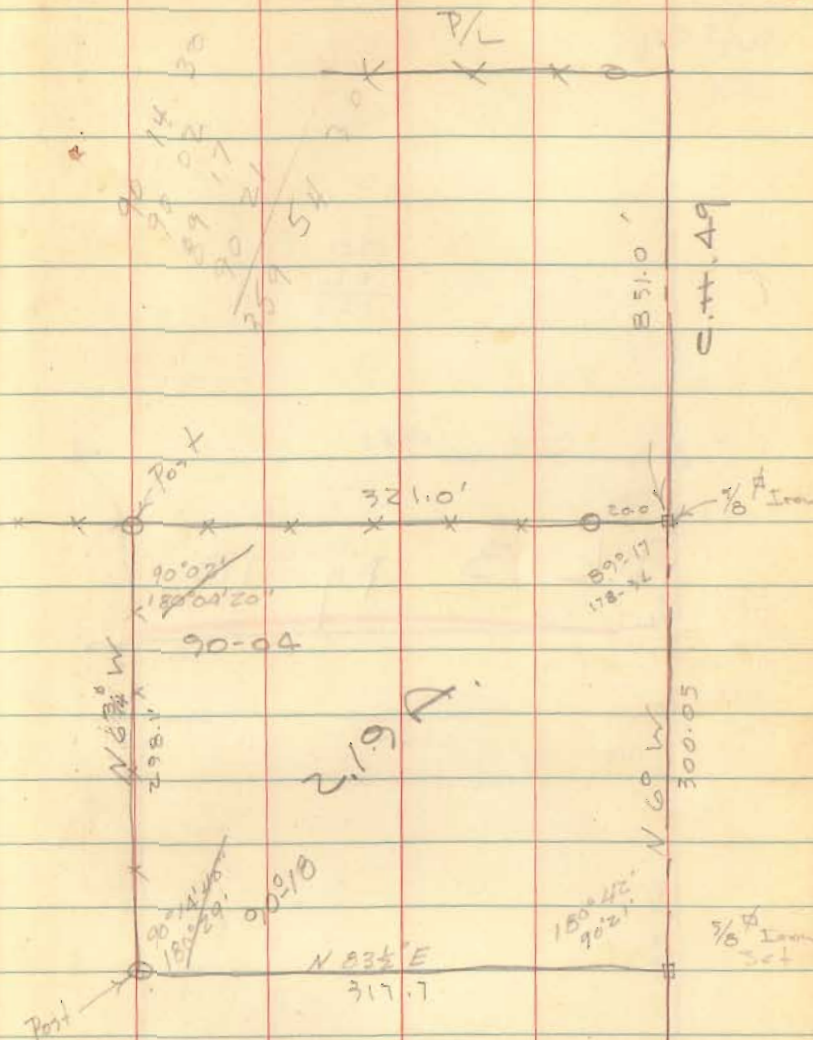 P/L
30
14
90 02 30
90 17
89 21
90
359 54
851.0'
C.H. 49
Post
321.0'
20.0
5/8 ⌀ Iron
90°02'
180°04'20"
90-04
89°17
178-34
N 6 3/4° W
298.1'
2.19 A.
N 6° W
300.05
90°14'40"
180°29'
90°18
180°42'
90°21'
5/8 ⌀ Iron
Set
N 83½° E
317.7
Post